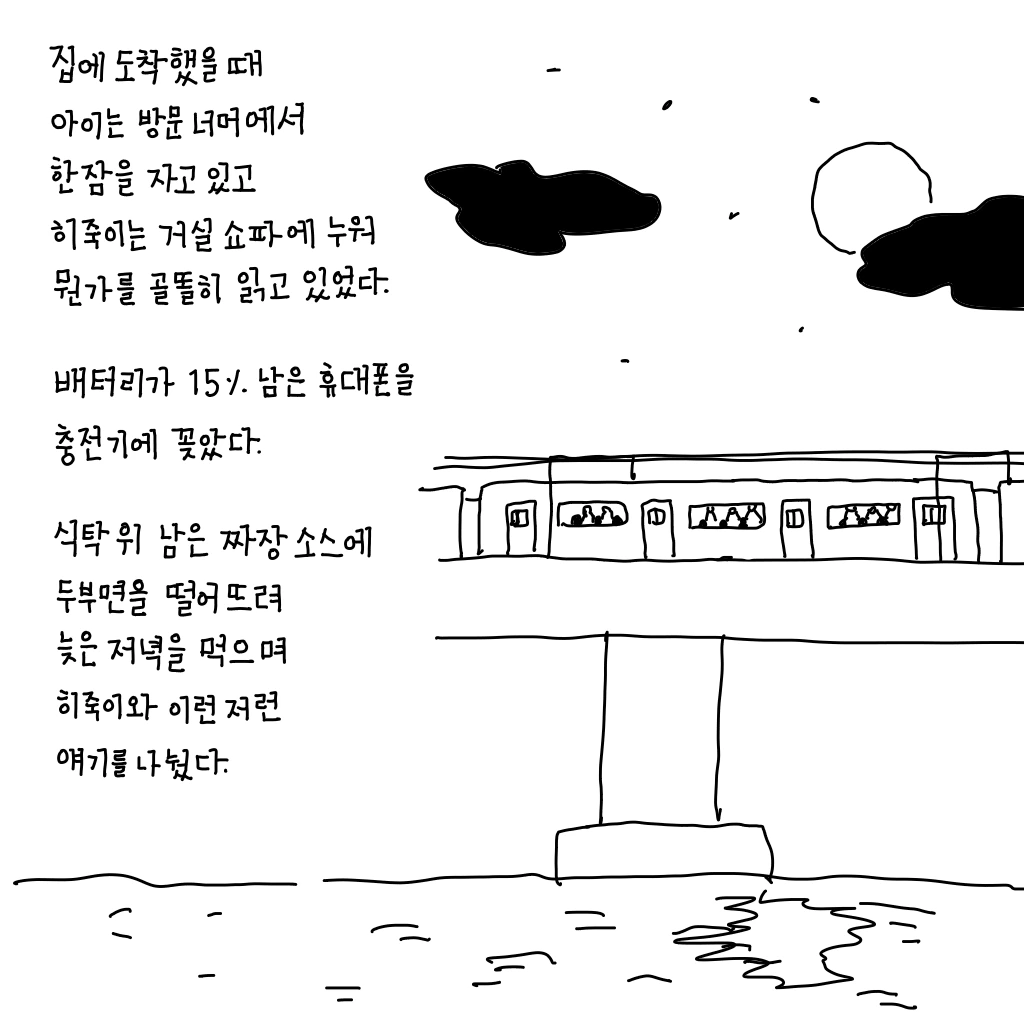 집에 도착했을 때
아이는 방문 너머에서
한잠을 자고 있고
히죽이는 거실 쇼파에 누워
뭔가를 골똘히 읽고 있었다.
배터리가 15% 남은 휴대폰을
충전기에 꽂았다.
식탁 위 남은 짜장 소스에
두부면을 떨어뜨려
늦은 저녁을 먹으며
히죽이와 이런 저런
얘기를 나눴다.